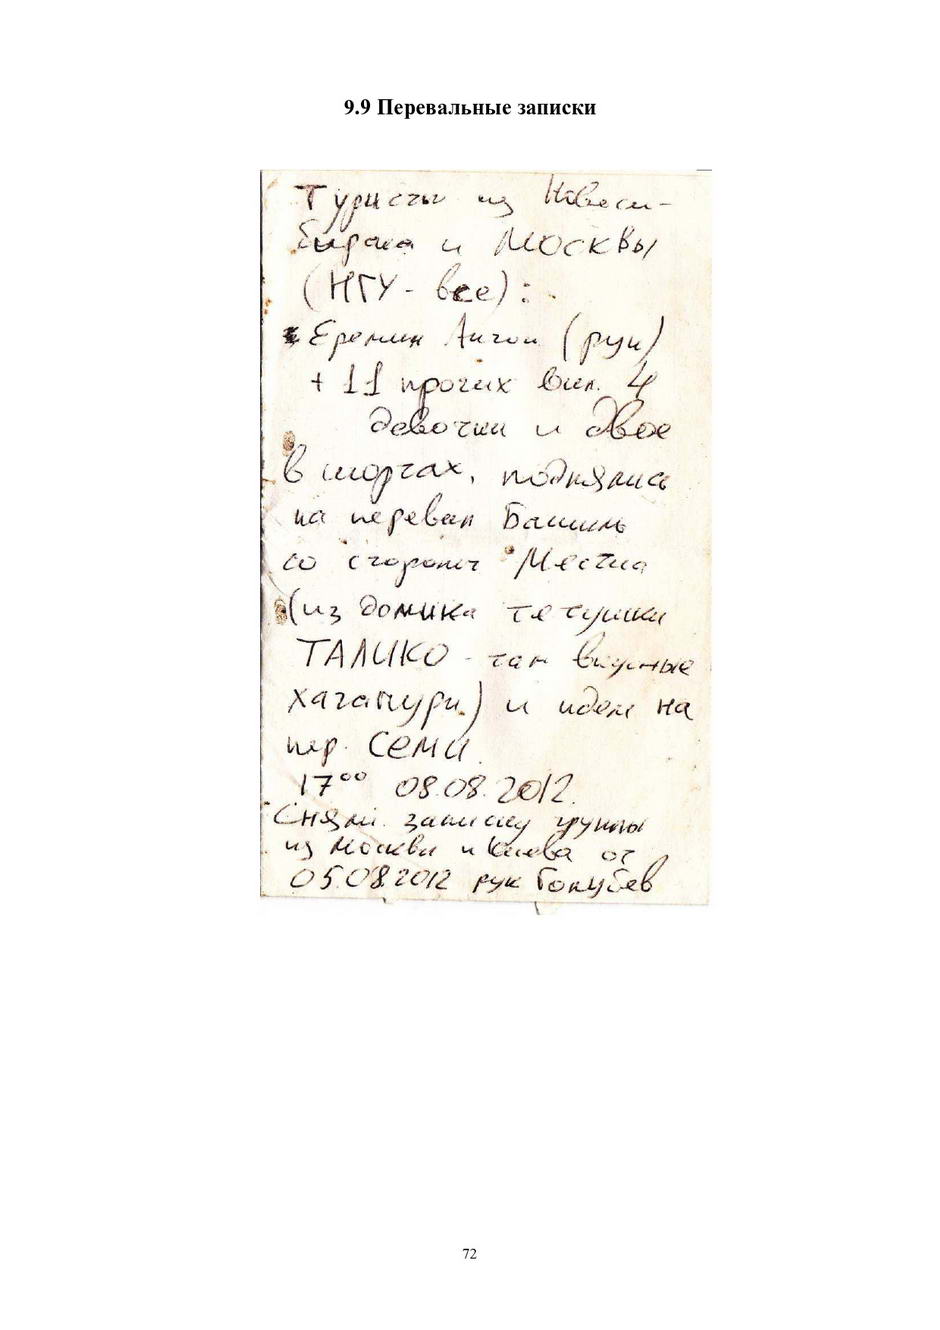 9.9 Перевальные записки
Туристы из Новоси-
бирска и МОСКВЫ
(НГУ - все):
Еремин Антон (рук)
+ 11 прочих вкл. 4
девочки и двое
в шортах, поднялись
на перевал Башиль
со стороны Местиа
(из домика тетушки
ТАЛИКО - там вкусные
хачапури.) и идем на
пер. СЕМИ.
17⁰⁰ 08.08.2012.
Сняли записку группы
из Москвы и Киева от
05.08.2012 рук Голубев
72